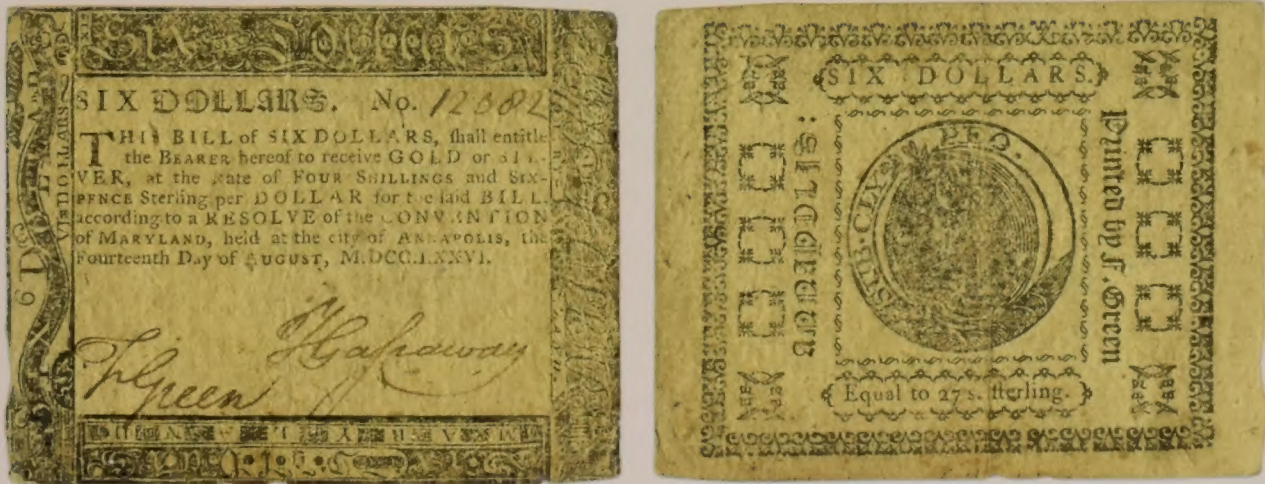 Six Dollars
SIX DOLLARS. No. 12082
THIS BILL of SIX DOLLARS, shall entitle
the BEARER hereof to receive GOLD or SIL-
VER, at the Rate of FOUR SHILLINGS and SIX-
PENCE Sterling per DOLLAR for the said BILL,
according to a RESOLVE of the CONVENTION
of MARYLAND, held at the city of ANNAPOLIS, the
Fourteenth Day of AUGUST, M.DCC.LXXVI.
F Green
VI DOLLARS
SIX DOLLARS.
ANNAPOLIS:
SUB·CLYPEO.
Printed by F. Green
Equal to 27 s. sterling.